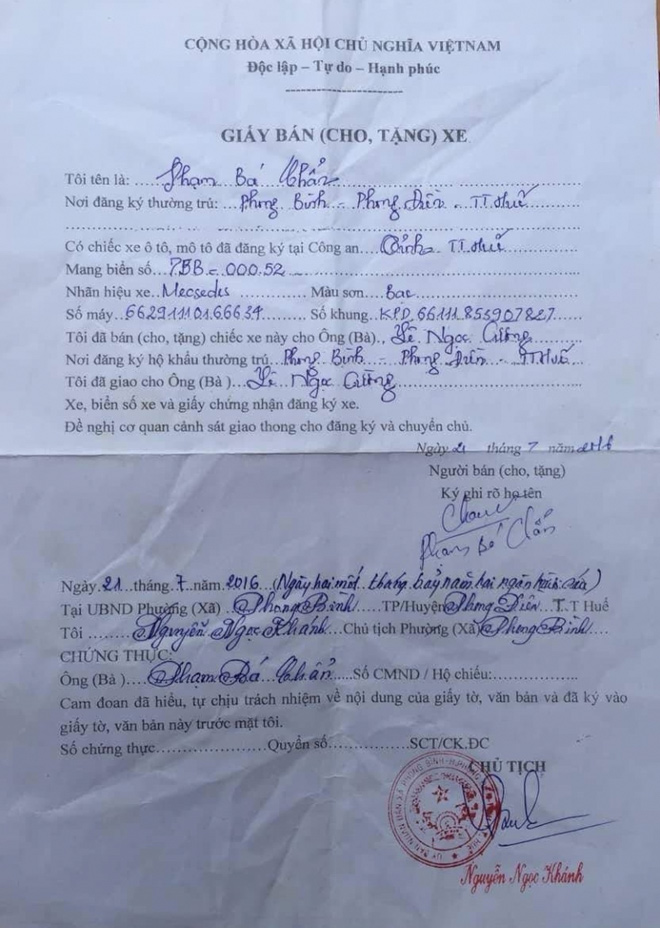 CỘNG HÒA XÃ HỘI CHỦ NGHĨA VIỆTNAM
Độc lập – Tự do – Hạnh phúc
GIẤY BÁN (CHO, TẶNG) XE
Tôi tên là: Phạm Bá Chẩn
Nơi đăng ký thường trú: Phong Bình - Phong Điền - TT Huế
Có chiếc xe ô tô, mô tô đã đăng ký tại Công an Tỉnh TT Huế
Mang biển số 75B - 000.52
Nhãn hiệu xe Mecsedes Màu sơn Bạc
Số máy 66291110166634 Số khung KPD 66111 853907827
Tôi đã bán (cho, tặng) chiếc xe này cho Ông (Bà) Lê Ngọc Cường
Nơi đăng ký hộ khẩu thường trú Phong Bình - Phong Điền - TT Huế
Tôi đã giao cho Ông (Bà ) Lê Ngọc Cường
Xe, biển số xe và giấy chứng nhận đăng ký xe.
Đề nghị cơ quan cảnh sát giao thong cho đăng ký và chuyển chủ.
Ngày 21 tháng 7 năm 2016
Người bán (cho, tặng)
Ký ghi rõ họ tên
Phạm Bá Chẩn
Ngày 21 tháng 7 năm 2016 (Ngày hai mốt tháng bảy năm hai ngàn mười sáu)
Tại UBND Phường (Xã) Phong Bình TP/Huyện Phong Điền T.T Huế
Tôi Nguyễn Ngọc Khánh Chủ tịch Phường (Xã) Phong Bình
CHỨNG THỰC:
Ông (Bà ) Phạm Bá Chẩn Số CMND / Hộ chiếu:
Cam đoan đã hiểu, tự chịu trách nhiệm về nội dung của giấy tờ, văn bản và đã ký vào
giấy tờ, văn bản này trước mặt tôi.
Số chứng thực Quyển số SCT/CK.ĐC
CHỦ TỊCH
Nguyễn Ngọc Khánh